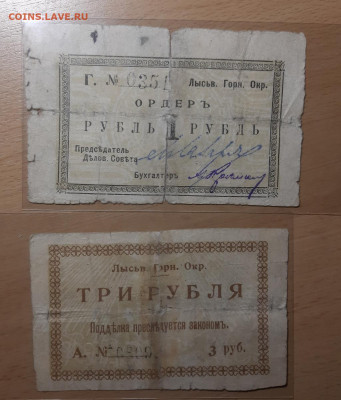 COINS.LAVE.RU
Г. № 0351 Лысьв. Горн. Окр.
ОРДЕРЪ
РУБЛЬ 1 РУБЛЬ
Председатель
Дѣлов. Совѣта
Бухгалтеръ
Лысьв. Горн. Окр.
ТРИ РУБЛЯ
Поддѣлка преслѣдуется закономъ.
А. № 3 руб.